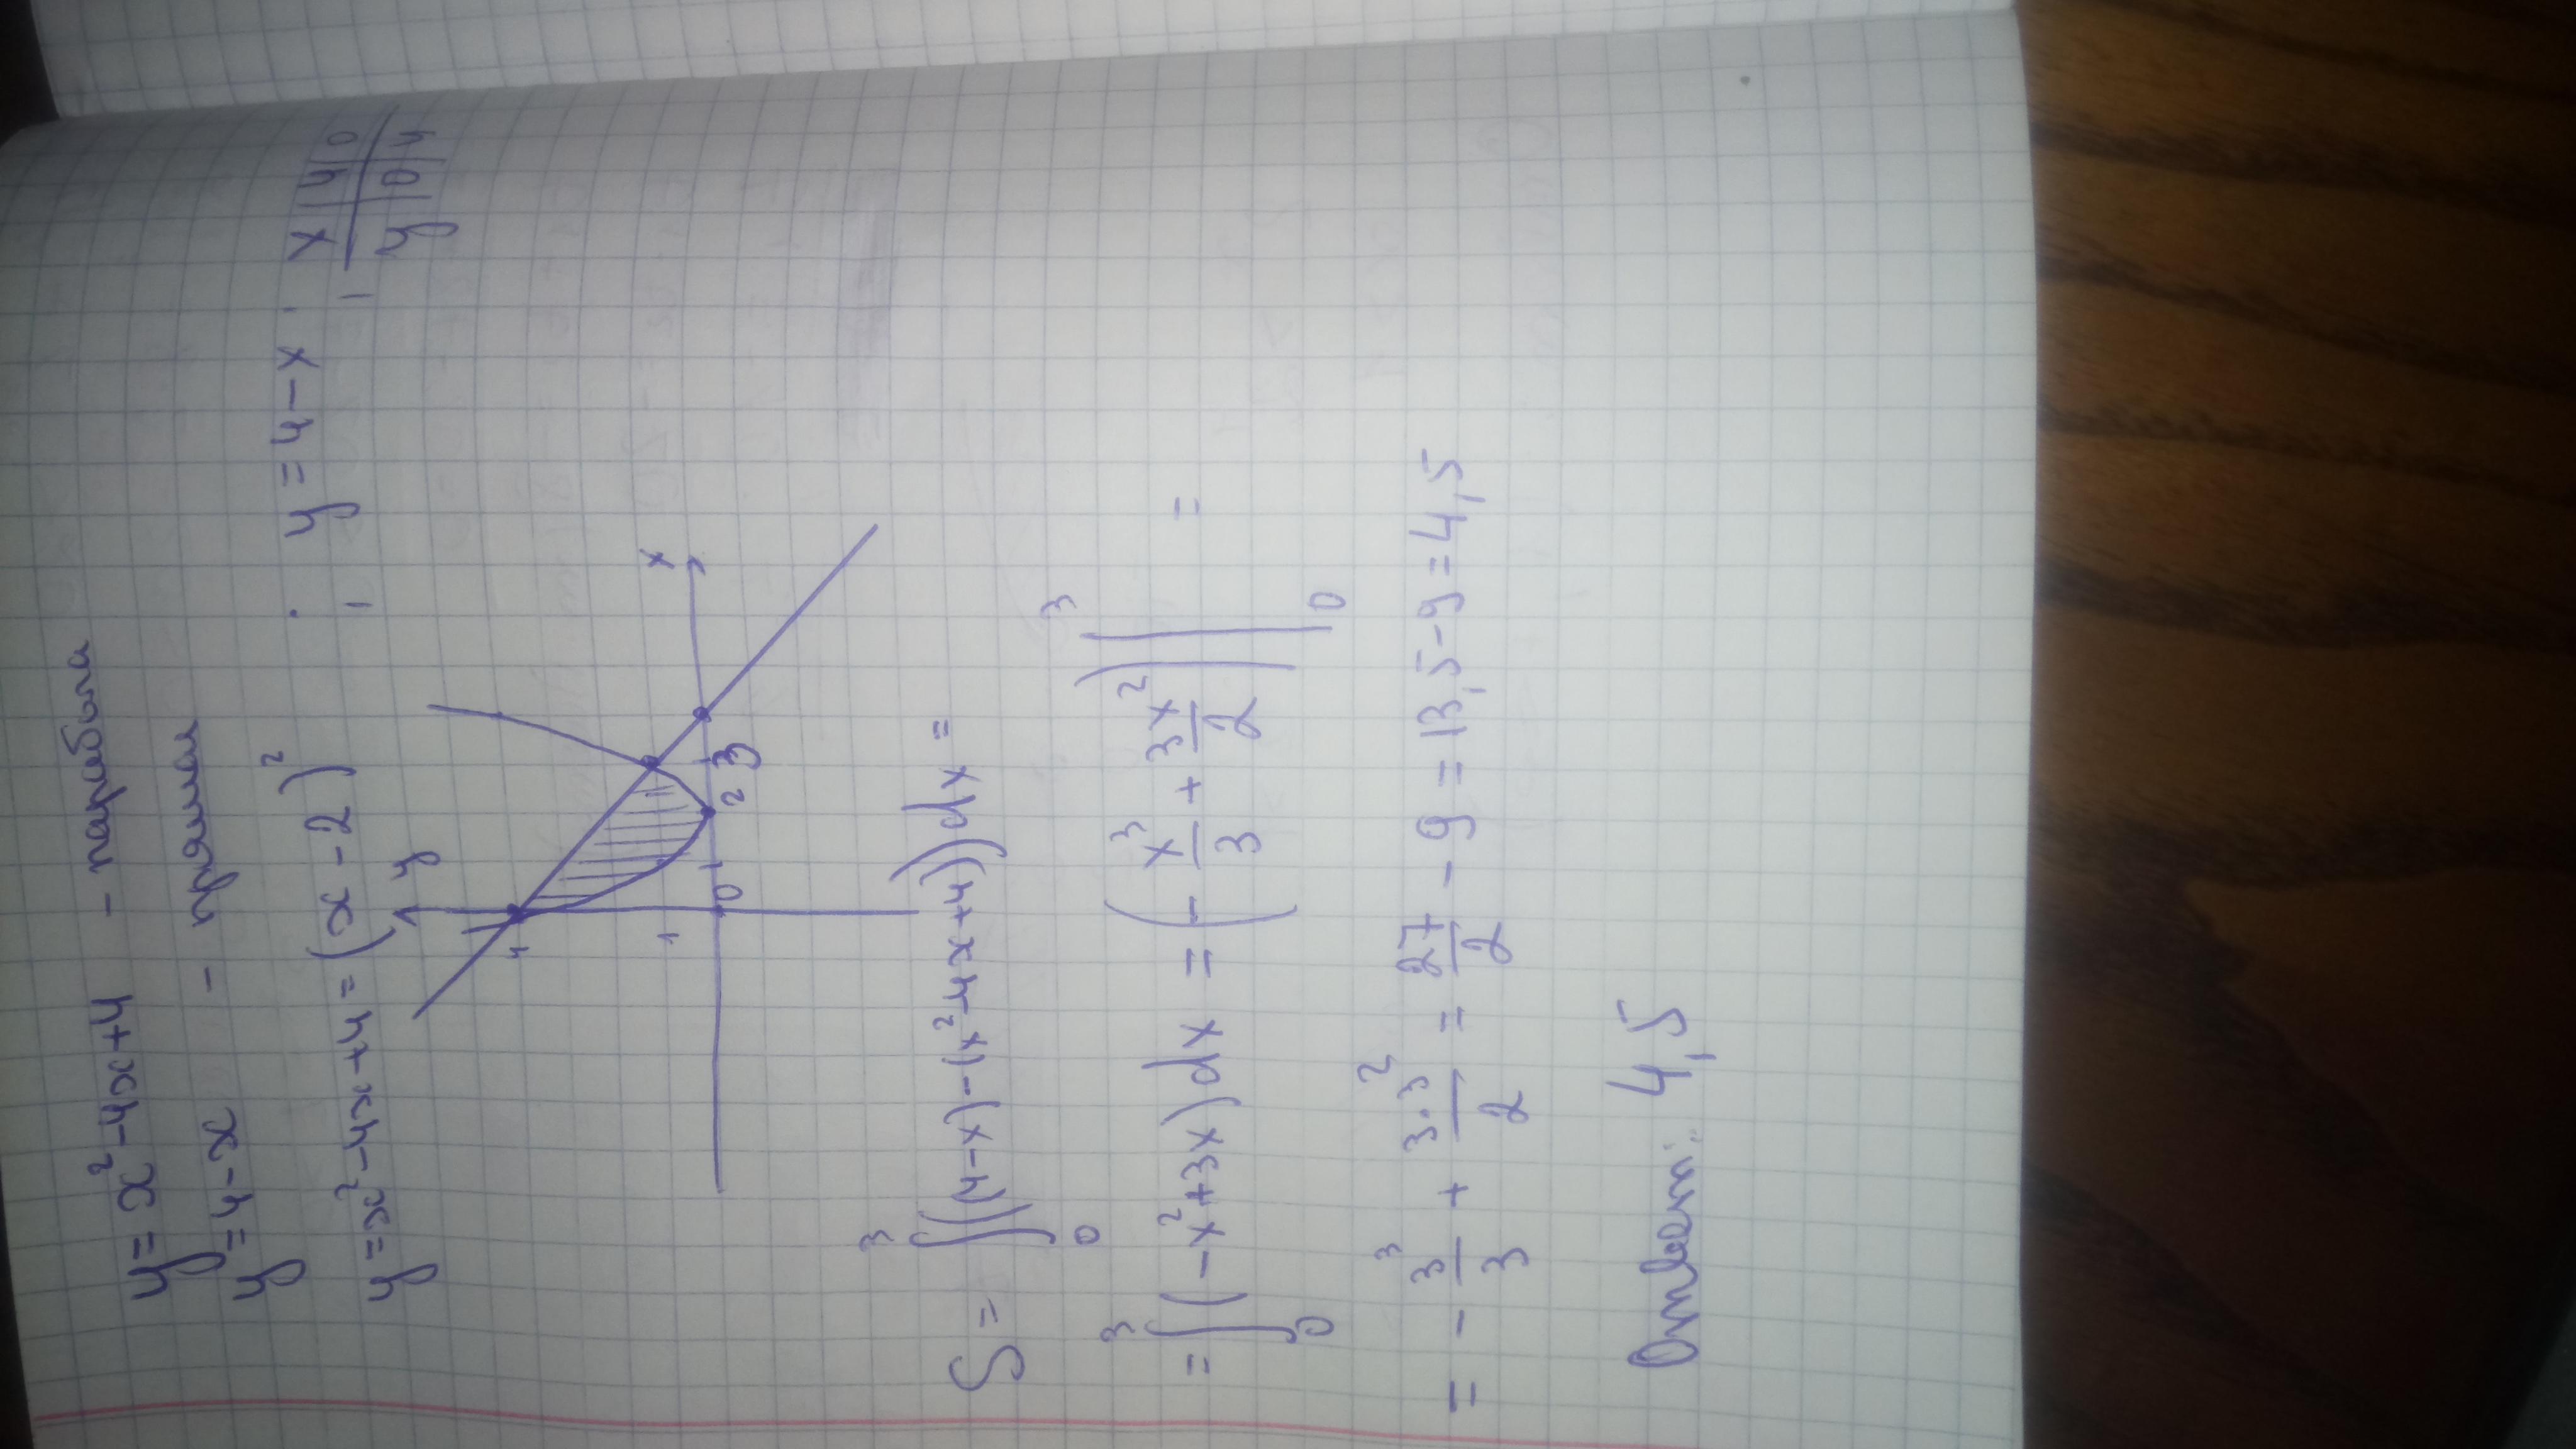 y = x² - 4x + 4 - парабола
y = 4 - x - прямая
y = x² - 4x + 4 = (x - 2)² ; y = 4 - x ; x | 4 | 0
y | 0 | 4
y
4
x
1
0 1 2 3
S = ∫₀³ ((4 - x) - (x² - 4x + 4)) dx =
= ∫₀³ (-x² + 3x) dx = (- x³/3 + 3x²/2) |₀³ =
= - 3³/3 + 3·3²/2 = 27/2 - 9 = 13,5 - 9 = 4,5
Ответ: 4,5